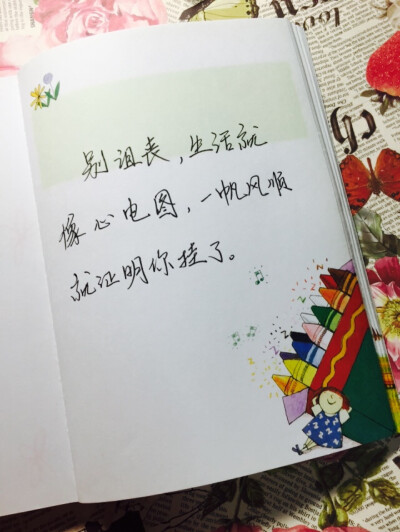 别沮丧，生活就
像心电图，一帆风顺
就证明你挂了。